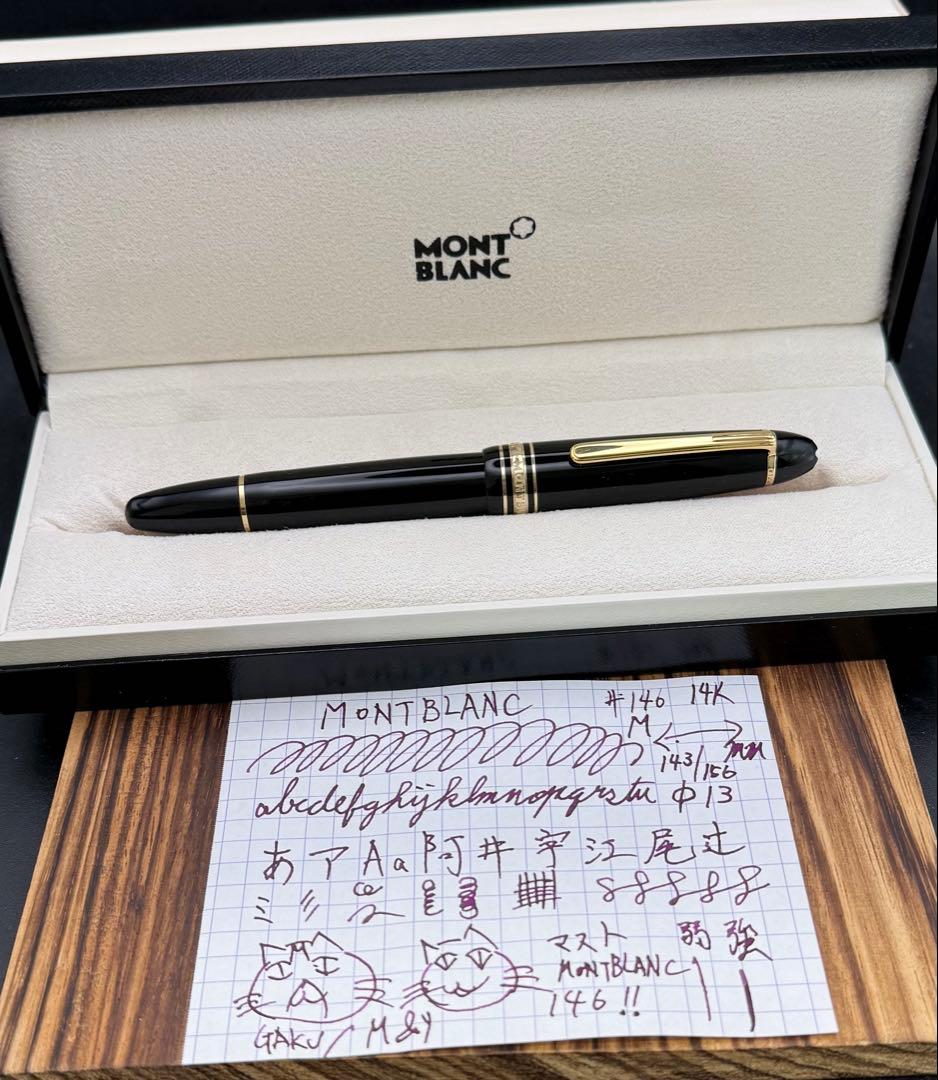 MONT
BLANC
MONTBLANC #146 14K
M
143/156 mm
abcdefghijklmnopqrstu Φ13
あ ア A a 阿 井 宇 江 尾 辻
ミ
マスト 弱 強
MONTBLANC
146!!
GAKU / M&Y